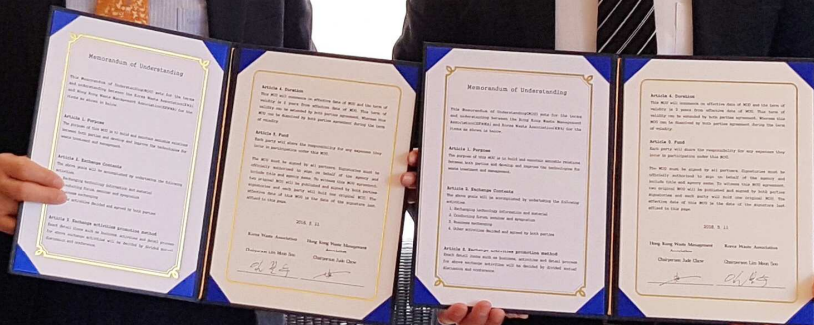 Memorandum of Understanding
This Memorandum of Understanding(MOU) sets for the terms
and understanding between the Korea Waste Association(KWA)
and Hong Kong Waste Management Association(HKWMA) for the
items as shown in below.
Article 1. Purpose
The purpose of this MOU is to build and maintain amicable
between both parties and develop and improve the techniques for
waste treatment and management.
Article 2. Exchange Contents
The above group will be accomplished by undertaking the following
activities:
Exchanging technology information and material
Conducting forum, seminar and symposium
Business
activities decided and agreed by both parties
Article 3. Exchange activities promotion method
Exact detail items such as business activities and detail process
for above exchange activities will be decided by
discussion and conference.
Article 4. Duration
This MOU will commence on effective date of MOU and the term of
validity is 2 years from effective date of MOU. Thus, term of
validity can be extended by both parties agreement. Whereas this
MOU can be dissolved by both parties agreement during the term
of validity.
Article 5. Fund
Each party will share the responsibility for any expenses they
incur in participation under this MOU.
The MOU must be signed by all partners. Signatories must be
officially authorized to sign on behalf of the agency and
include title and agency name. To witness this MOU agreement,
two original MOU will be published and signed by both parties
signatories and each party will hold one original MOU. The
effective date of this MOU is the date of the signature last
affixed to this page.
2018. 5. 11
Korea Waste Association
Hong Kong Waste Management
Chairperson
Chairperson Jude Chow
Memorandum of Understanding
This Memorandum of Understanding(MOU) sets for the terms
and understanding between the Hong Kong Waste Management
Association(HKWMA) and Korea Waste Association(KWA) for the
items as shown in below.
Article 1. Purpose
The purpose of this MOU is to build and maintain amicable relations
between both parties and develop and improve the techniques for
waste treatment and management.
Article 2. Exchange Contents
The above group will be accomplished by undertaking the following
activities:
1. Exchanging technology information and material
2. Conducting forum, seminar and symposium
3. Business
4. Other activities decided and agreed by both parties
Article 3. Exchange activities promotion method
Exact detail items such as business activities and detail process
for above exchange activities will be decided by mutual
discussion and conference.
Article 4. Duration
This MOU will commence on effective date of MOU and the term of
validity is 2 years from effective date of MOU. Thus, term of
validity can be extended by both parties agreement. Whereas this
MOU can be dissolved by both parties agreement during the term
of validity.
Article 5. Fund
Each party will share the responsibility for any expenses they
incur in participation under this MOU.
The MOU must be signed by all partners. Signatories must be
officially authorized to sign on behalf of the agency and
include title and agency name. To witness this MOU agreement,
two original MOU will be published and signed by both parties
signatories and each party will hold one original MOU. The
effective date of this MOU is the date of the signature last
affixed to this page.
2018. 5. 11
Hong Kong Waste Management
Korea Waste Association
Chairperson Jude Chow
Chairperson